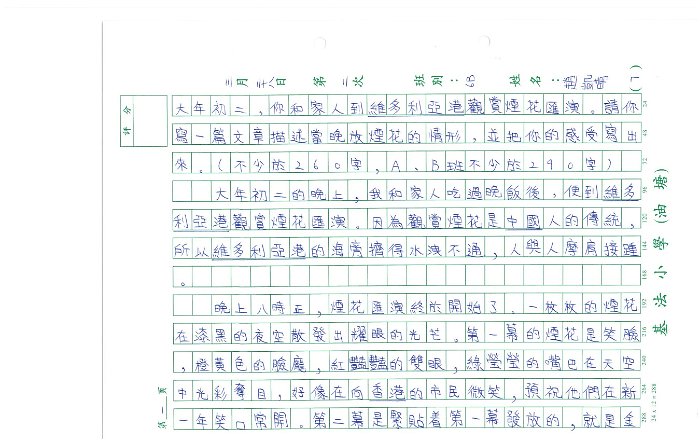 三月二十八日 第二次 班別：6B 姓名： (7)
評分
大年初二，你和家人到維多利亞港觀賞煙花匯演。請你
寫一篇文章描述當晚放煙花的情形，並把你的感受寫出
來。(不少於260字，A、B班不少於290字)
大年初二的晚上，我和家人吃過晚飯後，便到維多
利亞港觀賞煙花匯演。因為觀賞煙花是中國人的傳統，
所以維多利亞港的海旁擠得水洩不通，人與人摩肩接踵
。
晚上八時正，煙花匯演終於開始了。一枚枚的煙花
在漆黑的夜空散發出耀眼的光芒。第一幕的煙花是笑臉
，橙黃色的臉龐，紅豔豔的雙眼，綠瑩瑩的嘴巴在天空
中光彩奪目，好像在向香港的市民微笑，預祝他們在新
一年笑口常開。第二幕是緊貼着第一幕發放的，就是金
第一頁
基法小學(油塘)
24
48
72
96
120
144
168
192
216
240
264
288
24×12=288